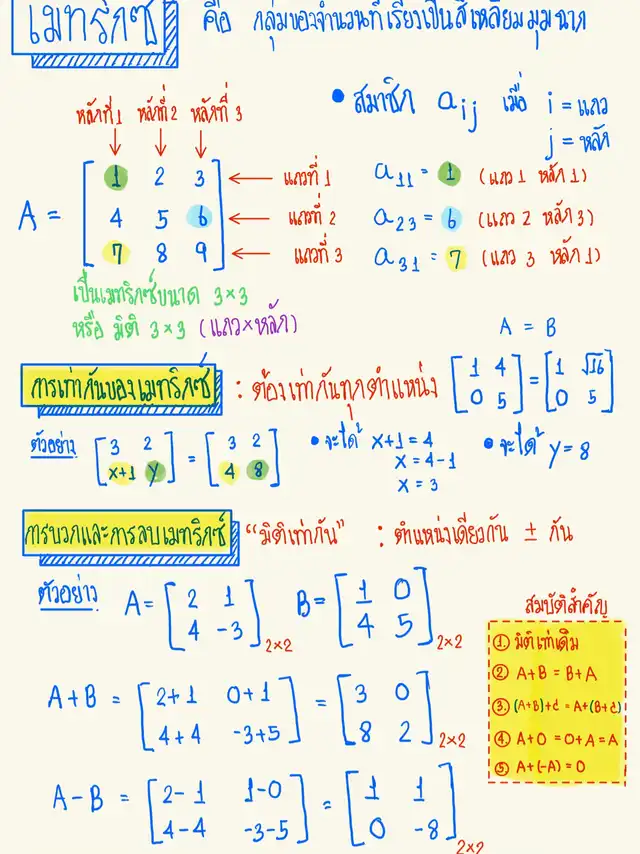 เมทริกซ์ คือ กลุ่มของจำนวนที่เรียงเป็นสี่เหลี่ยมมุมฉาก
• สมาชิก aij เมื่อ i = แถว
j = หลัก
หลักที่ 1 หลักที่ 2 หลักที่ 3
A = [1 2 3 ← แถวที่ 1
4 5 6 ← แถวที่ 2
7 8 9] ← แถวที่ 3
a11 = 1 (แถว 1 หลัก 1)
a23 = 6 (แถว 2 หลัก 3)
a31 = 7 (แถว 3 หลัก 1)
เป็นเมทริกซ์ขนาด 3×3
หรือ มิติ 3×3 (แถว×หลัก)
A = B
การเท่ากันของเมทริกซ์ : ต้องเท่ากันทุกตำแหน่ง
[1 4] = [1 √16]
[0 5] [0 5]
ตัวอย่าง [3 2] = [3 2]
[x+1 y] [4 8]
• จะได้ x+1 = 4
x = 4-1
x = 3
• จะได้ y = 8
การบวกและการลบเมทริกซ์ "มิติเท่ากัน" : ตำแหน่งเดียวกัน ± กัน
ตัวอย่าง A = [2 1] B = [1 0]
[4 -3]2×2 [4 5]2×2
A+B = [2+1 0+1] = [3 0]
[4+4 -3+5] [8 2]2×2
A-B = [2-1 1-0] = [1 1]
[4-4 -3-5] [0 -8]2×2
สมบัติสำคัญ
① มิติเท่าเดิม
② A+B = B+A
③ (A+B)+C = A+(B+C)
④ A+0 = 0+A = A
⑤ A+(-A) = 0